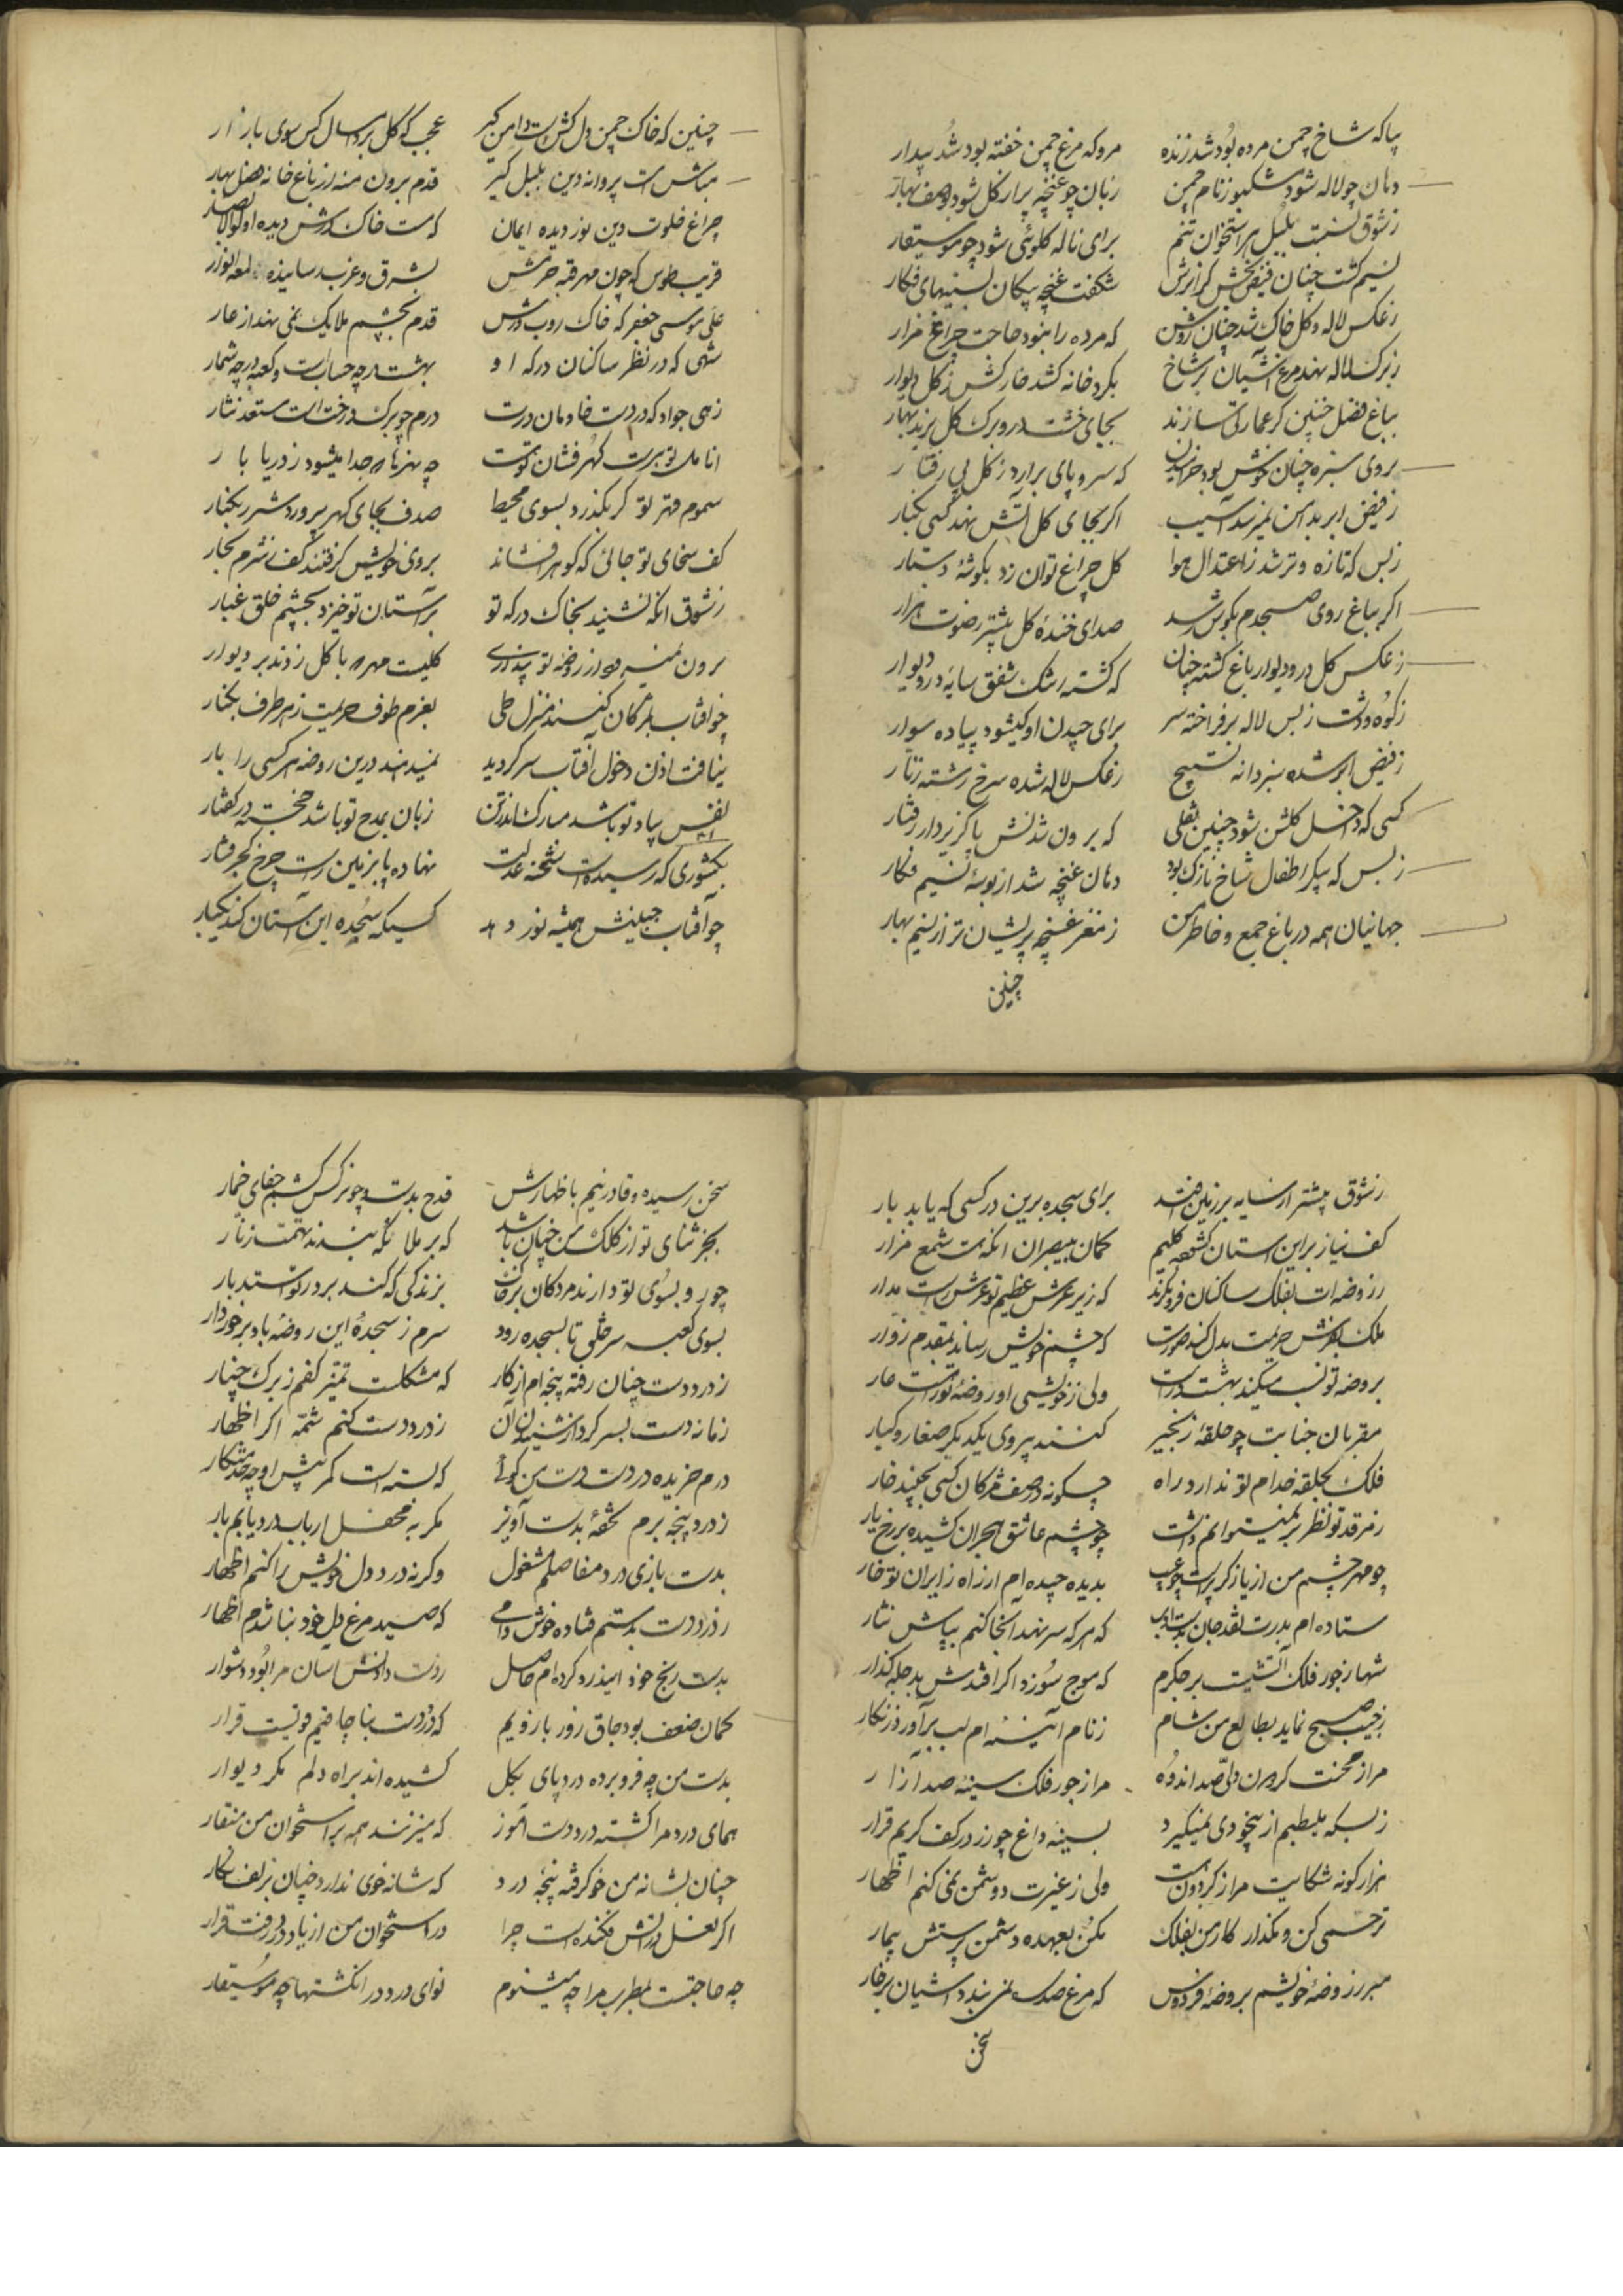 بیا که شاخ چمن مرده بود شد زنده مرو که مرغ چمن خفته بود شد بیدار
دهان چو لاله شود مشکبو ز نام چمن زبان چو غنچه پر از گل شود ز وصف بهار
ز شوق نسبت بلبل هر استخوان تنم برای ناله گلوئی شود چو موسیقار
نسیم گشت چنان فیض بخش کز اثرش شگفت غنچه پیکان بسینهای فکار
ز عکس لاله و گل خاک شد چنان روشن که مرده را نبود حاجت چراغ مزار
ز برگ لاله نهد مرغ آشیان بر شاخ بگرد خانه کشد خارکش ز گل دیوار
بباغ فصل چنین گر عمارتی سازند بجای خشت درو برگ گل برند بکار
بروی سبزه چنان خوش بود خرامیدن که سرو پای برآرد ز گل پی رفتار
ز فیض ابر بدامن نمیرسد آسیب اگر بجای گل آتش نهد کسی بکنار
ز بس که تازه و تر شد ز اعتدال هوا گل چراغ توان زد بگوشهٔ دستار
اگر بباغ روی صبحدم بگوش رسد صدای خندهٔ گل بیشتر ز صوت هزار
ز عکس گل در و دیوار باغ گشته چنان که گشته رشک شفق سایهٔ در و دیوار
ز کوه و دشت ز بس لاله برفراخته سر برای چیدن او کیشود پیاده سوار
ز فیض ابر شده سبز دانه تسبیح ز عکس لاله شده سرخ رشته زنار
کسی که داخل گلشن شود چنین فصلی که برون شدنش پا گریزد از رفتار
ز بس که پیکر اطفال شاخ نازک بود دهان غنچه شد از بوسهٔ نسیم فکار
جهانیان همه در باغ جمع و خاطر من ز مغز غنچه پریشان تر از نسیم بهار
چنین
چنین که خاک چمن دلکش است و دامن گیر عجب که گل برد امسال کس سوی بازار
مباش مست پروانه دین بلبل گیر قدم برون منه از باغ خانه فصل بهار
چراغ خلوت دین نور دیده ایمان که هست خاک درش دیدهٔ اولوالابصار
غریب طوس که چون مهر قبه حرمش بشرق و غرب رسانیده لمعه انوار
علی موسی جعفر که خاک روب درش قدم بچشم ملایک نمی نهد از عار
شهی که در نظر ساکنان درگه او بهشت در چه حساب است و کعبه در چه شمار
زهی جواد که در دست خادمان درت درم چو برگ درخت است مستعد نثار
انامل تو ببرست گهرفشان توست چه نهرها که جدا میشود ز دریا بار
سموم قهر تو گر بگذرد بسوی محیط صدف بجای گهر پرورد شرر بکنار
کف سخای تو جائی که گوهر افشاند بروی خویش گرفتند کف ز شرم بحار
ز شوق آنکه نشیند بخاک درگه تو بر آستان تو خیزد بچشم خلق غبار
برون نمیرود از روضهٔ تو پنداری کلیت مهره با گل زدند بر دیوار
چو آفتاب بمژگان کنند منزل طی بعزم طوف حریمت ز هر طرف بکنار
نیافت اذن دخول آفتاب سر گردید نمیدهند درین روضه هر کسی را بار
نفس بیاد تو باشد مبارک اندر تن زبان بمدح تو باشد خجسته در گفتار
بکشوری که رسیده است شحنه عدلت نهاده پا بزمین راست چرخ کج رفتار
چو آفتاب جبینش همیشه نور دهد کسیکه سجده این آستان کند یکبار
ز شوق پیشتر از سایه بر زمین افتد برای سجده برین در کسی که یابد بار
کف نیاز براین آستان گشوده کلیم گمان بیبصران آنکه هست شمع مزار
ز روضه ات بفلک ساکنان فرو نگرند که زیر عرش عظیم تو عرش راست مدار
ملک بفرش حریمت بدل کند صورت که چشم خویش رساند بمقدم زوار
بروضه تو نسب میکند بهشت درست ولی ز خویشی او روضهٔ تو راست عار
مقربان جنابت چو حلقهٔ زنجیر کنند پیروی یکدیگر صغار و کبار
فلک بحلقه خدام تو ندارد راه چگونه در صف مژگان کسی بچیند خار
ز مرقد تو نظر بر نمیتوانم داشت چو چشم عاشق هجران کشیده بر رخ یار
چو مهر چشم من ار باز گر پر است چه عیب بدیده چیده ام از راه زایران تو خار
ستاده ام بدرت نقد جان بدست ادب که هر که سر نهد آنجا کنم بپاش نثار
شها ز جور فلک آتشیست بر جگرم که موج سوزد اگر افتدش بدجله گذار
ز جیب صبح نماید بطالع من شام ز نام آئینه ام لب برآورد زنگار
مرا ز محنت گردون دلی و صد اندوه مرا ز جور فلک سینهٔ و صد آزار
ز بسکه میطپم از بیخودی نمیگیرد بسینه داغ چو زر در کف کریم قرار
هزار گونه شکایت مرا ز گردونست ولی ز غیرت دشمن نمی کنم اظهار
ترحمی کن و مگذار کار من بفلک مکن بعهده دشمن پرستش بیمار
مبر ز روضهٔ خویشم بروضهٔ فردوس که مرغ سدره نمی بندد آشیان بر خار
سخن
سخن رسیده و قادر نیم باظهارش قدح بدست و چو نرگس کشم جفای خمار
بجز ثنای تو از کلک من چنان باشد که بر ملائکه بندند تهمت زنار
چو رو بسوی تو دارند مردگان بر خاک بزندگی که کند بر در تو استدبار
بسوی کعبه سر خلق تا بسجده رود سرم ز سجدهٔ این روضه باد برخوردار
ز درد دست چنان رفته پنجه ام از کار که مشکلست تمیز کفم ز برگ چنار
زمانه دست بسر کرد از شنیدن آن ز درد دست کنم شمهٔ اگر اظهار
درم خریده درد است دست من گوئی که بسته است کمر پیش او چو خدمتکار
ز درد پنجه برم تحفهٔ بدست آویز مگر به محفل ارباب درد یابم بار
بدست بازی درد مفاصلم مشغول وگرنه درد دل خویش را کنم اظهار
ز درد دست بدستم فتاده خوش دامی که صید مرغ دل خود بنا شدم اظهار
بدست رنج خود این درد کرده ام حاصل ز دست دادنش آسان مرا بود دشوار
کمان ضعف بود چاق زور بازویم که درد دست بناچاقیم قویست قرار
بدست من چه فرو برده درد پای بگل کشیده اند براه دلم مگر دیوار
همای درد مرا گشته درد دست آموز که میزنند همه بر استخوان من منقار
چنان بشانه من خو گرفته پنجهٔ درد که شانه خوی ندارد چنان بزلف نگار
اگر نه نعل در آتش فکنده است چرا در استخوان من از یاد درد رفت قرار
چه حاجتست بمطرب مرا چه میشنوم نوای درد در انگشتها چو موسیقار